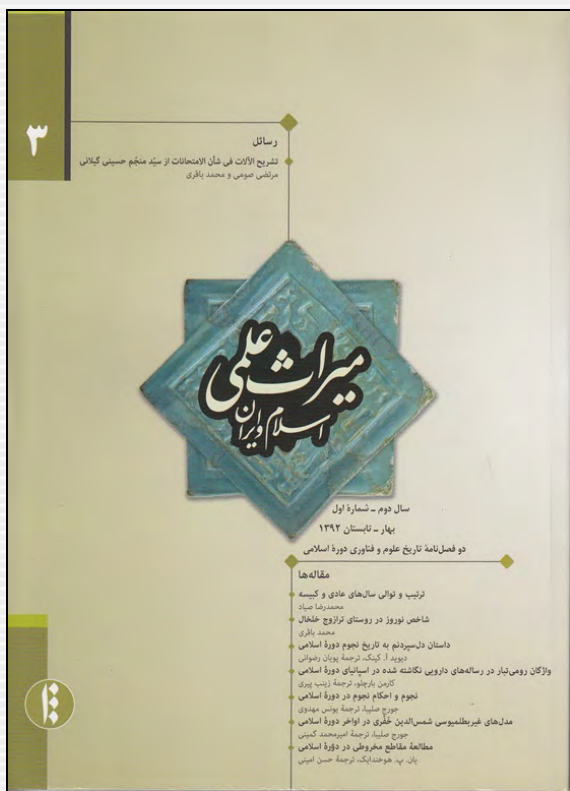 ۳
رسائل
تشریح الآلات فی شأن الامتحانات از سیّد منجّم حسینی گیلانی
مرتضی صومی و محمد باقری
میراث علمی
اسلام و ایران
سال دوم ـ شمارهٔ اول
بهار ـ تابستان ۱۳۹۲
دو فصل‌نامهٔ تاریخ علوم و فناوری دورهٔ اسلامی
مقاله‌ها
ترتیب و توالی سال‌های عادی و کبیسه
محمدرضا صیاد
شاخص نوروز در روستای ترازوج خلخال
محمد باقری
داستان دل‌سپردنم به تاریخ نجوم دورهٔ اسلامی
دیوید آ. کینگ، ترجمهٔ پویان رضوانی
واژگان رومی‌تبار در رساله‌های دارویی نگاشته شده در اسپانیای دورهٔ اسلامی
کارمن بارچلو، ترجمهٔ زینب پیری
نجوم و احکام نجوم در دورهٔ اسلامی
جورج صلیبا، ترجمهٔ یونس مهدوی
مدل‌های غیربطلمیوسی شمس‌الدین خَفْری در اواخر دورهٔ اسلامی
جورج صلیبا، ترجمهٔ امیرمحمد گمینی
مطالعهٔ مقاطع مخروطی در دورهٔ اسلامی
یان. پ. هوخندایک، ترجمهٔ حسن امینی